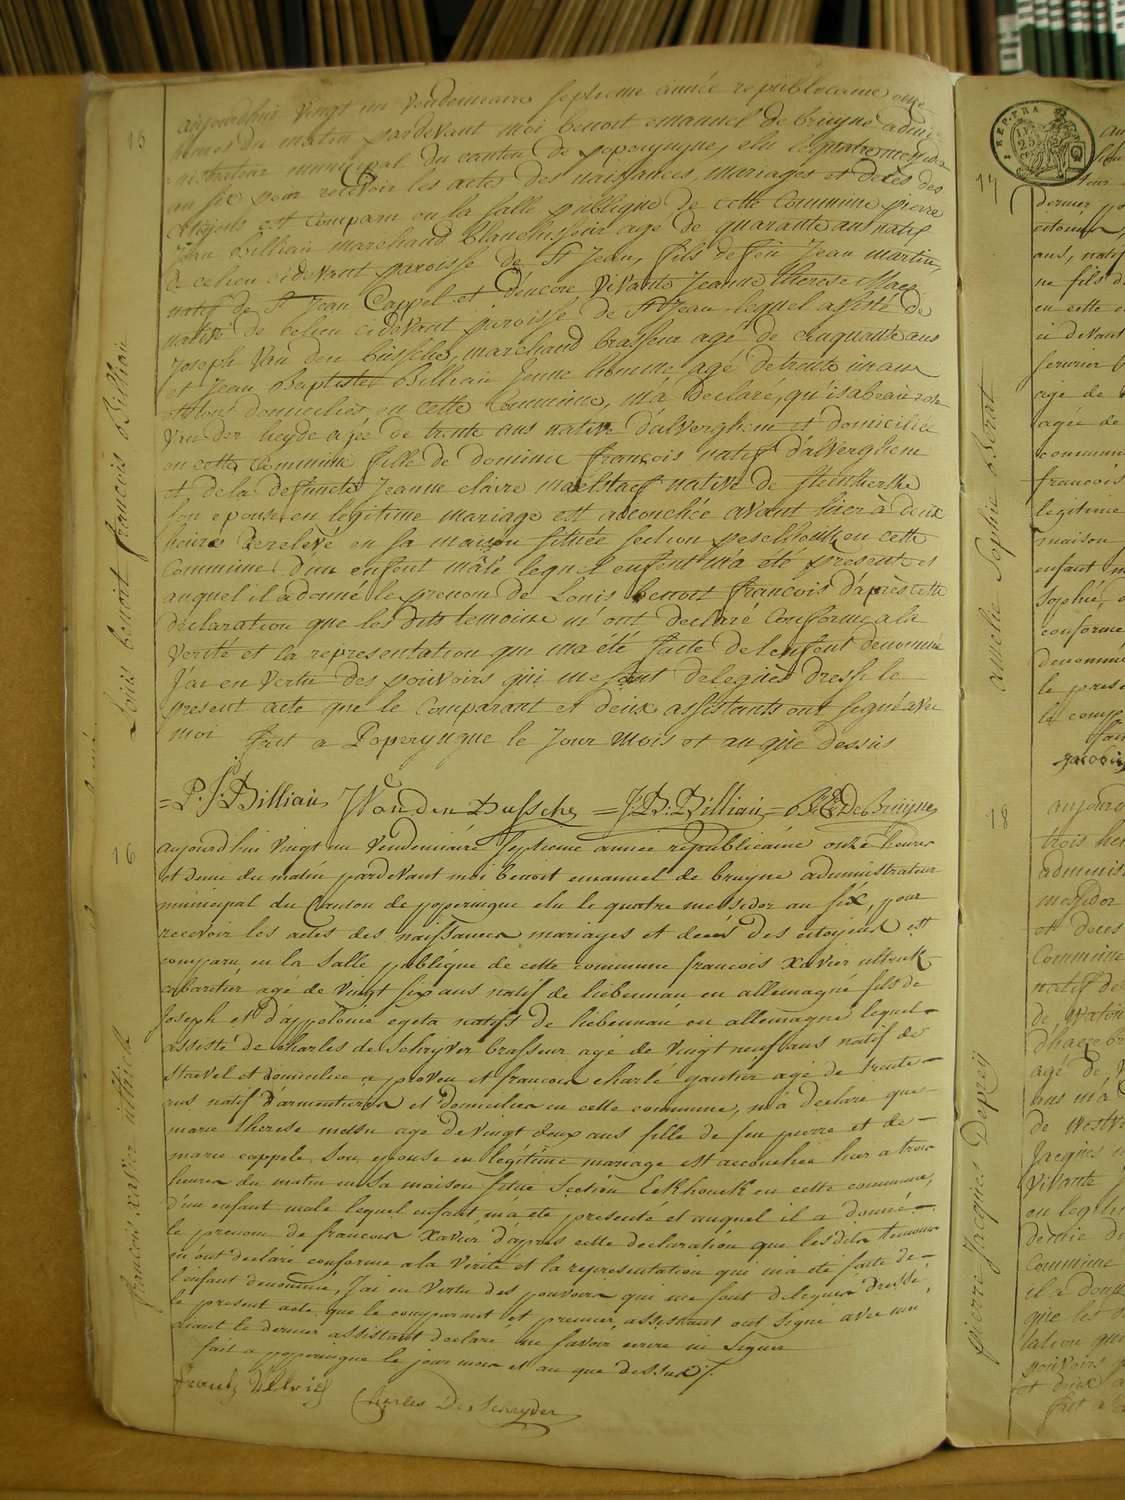 15
Louis benoit francois Billiau
aujourdhui vingt un vendemiaire septieme année republicaine onze
heures du matin pardevant moi benoit emanuel de bruyne admi-
nistrateur municipal du canton de poperingue, elu le quatre messidor
an six pour recevoir les actes des naissances, mariages et décès des
citoyens est comparu en la salle publique de cette commune pierre
Jean Billiau marchand blanchisseur agé de quarante ans natif
de ce lieu cidevant paroisse de St Jean, fils de feu Jean martin,
natif de St Jean Cappel et d'encore vivante Jeanne therese Maes
native de ce lieu cidevant paroisse de St Jean lequel assisté de
Joseph Van den bussche, marchand brasseur agé de cinquante ans
et Jean Baptiste Billiau Jeune homme agé de trente un ans
tous domiciliés en cette commune, m'a declaré, qu'isabeau
Van der heyde agée de trente ans native d'alverghem et domiciliée
en cette commune fille de dominic françois natif d'alverghem
et de la defuncte Jeanne claire native de
son epouse en legitime mariage est accouchée avant hier à deux
heures de relevé en sa maison située section peselhouk en cette
Commune d'un enfant mâle lequel enfent m'a été présenté et
auquel il a donné le prenom de Louis benoit francois d'après cette
declaration que les dits temoins m'ont declaré conforme a la
verité et la representation qui m'a été faite de l'enfent denommé
J'ai en vertu des pouvoirs qui me sont delegués dressé le
present acte que le comparant et deux assistants ont signé avec
moi fait a Poperyngue le Jour mois et an que dessus
=P. J Billiau J Van den Bussche =J: B: Billiau =B: E De Bruyne
16
francois xavier ultrich
aujourd'hui vingt un vendemiaire septieme année républicaine onze heures
et demi du matin pardevant moi benoit emanuel de bruyne administrateur
municipal du Canton de poperingue elu le quatre messidor an six, pour
recevoir les actes des naissances mariages et décés des citoyens est
comparu en la salle publique de cette commune francois xavier
cabaretier agé de vingt six ans natif de liebennau en allemagne fils de
Joseph et d'appolonie egeta natifs de liebennau en allemagne lequel
assisté de charles de Schryver brasseur agé de vingt neuf ans natif de
Stavel et domicilié a proven et francois charle gautier agé de trente
ans natif d'armentieres et domicilié en cette commune, m'a declaré que
marie therese agé de vingt deux ans fille de feu pierre et de
marie cappele son epouse en legitime mariage est accouchée hier a trois
heures du matin en sa maison située Section Eekhouck en cette commune,
d'un enfant male lequel enfant m'a été presenté et auquel il a donné
le prenom de francois Xavier d'après cette declaration que les dits temoins
m'ont declaré conforme a la verité et la representation qui m'a été faite de
l'enfant denommé, J'ai en vertu des pouvoirs qui me sont delegués dressé
le present acte que le comparant et premier assistant ont signé avec moi
aiant le dernier assistant declaré ne savoir ecrire ni signer
fait a poperingue le jour mois et an que dessus
Charles De Schryver
REP. FRA
17
amelie Sophie
dernier
citoien
ans, natif
ne fils d
en cette
ci devant
agé de
agée de
commune
françois
legitime
maison
enfant m
Sophie,
conforme
denommé
le present
le comp
18
pierre Jacques Depreij
aujourd
trois heu
administ
messidor
et deces
Commune
natif de
de
agé de
ans m'a
de
Jacques
vivante
en legiti
demie de
Commune
il a donn
que les d
lation qui
pouvoirs
et deux a
fait a